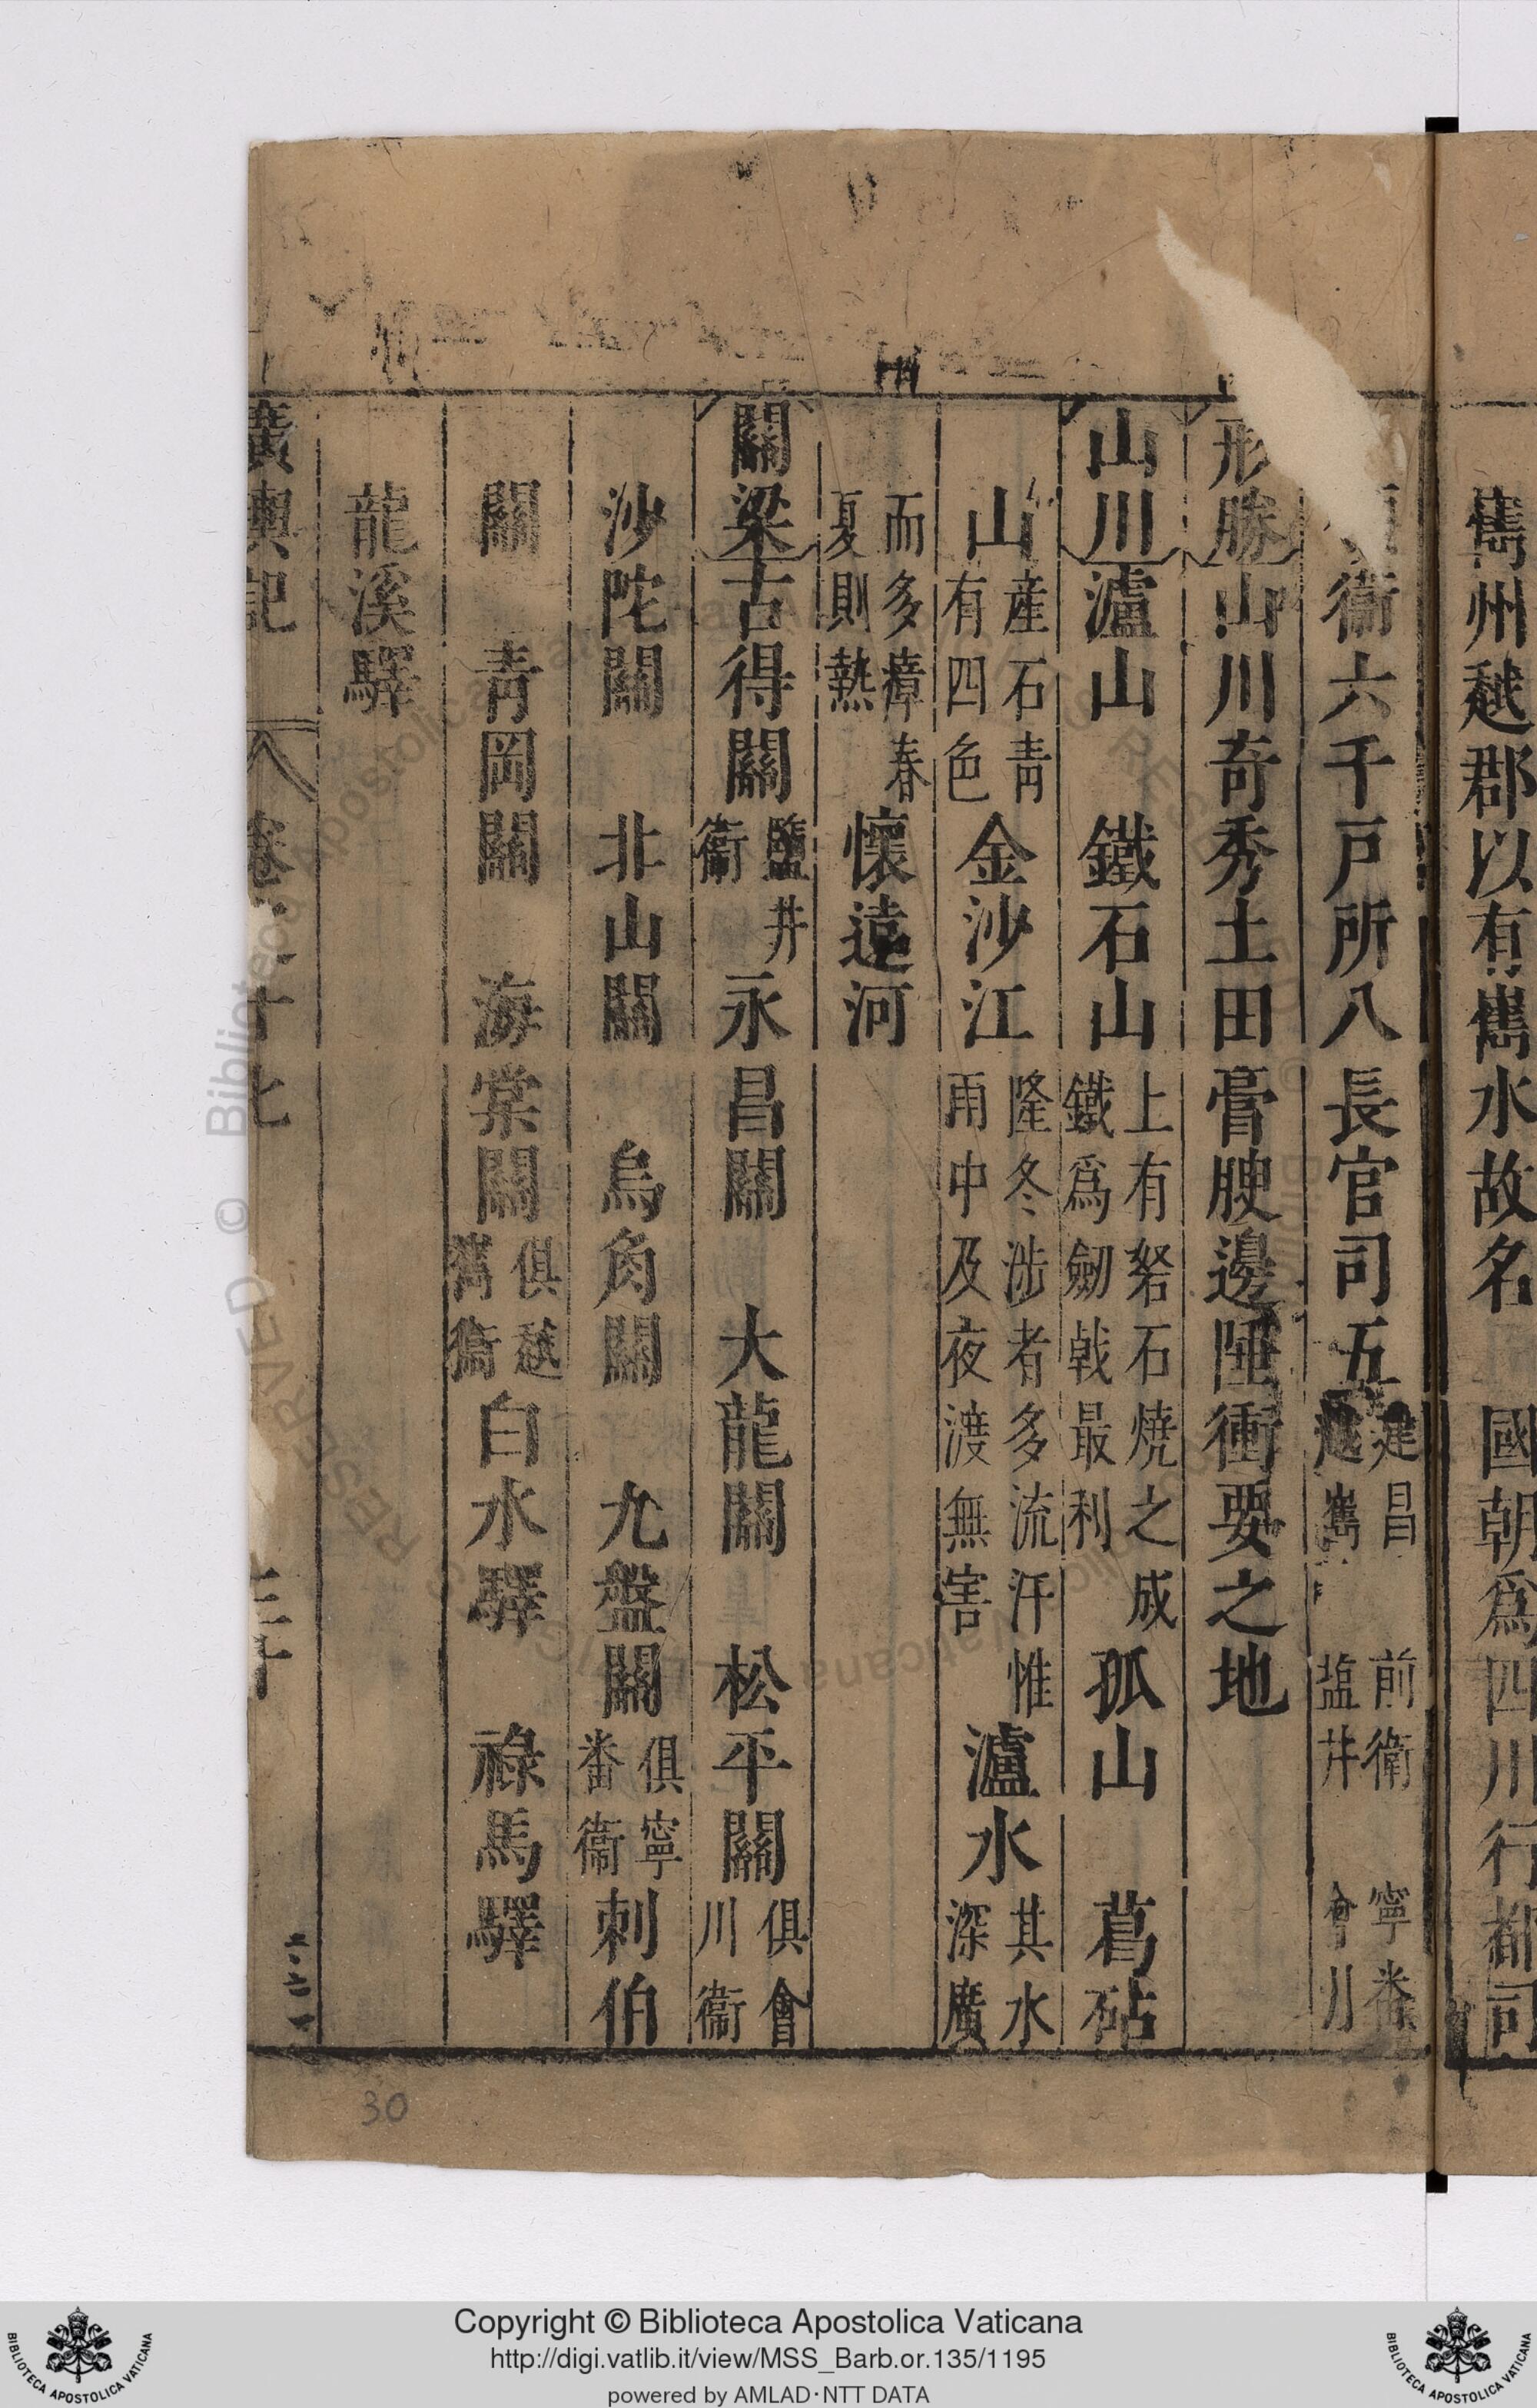 嶲州越郡以有嶲水故名 國朝爲四川行都司
衞六千戸所八長官司五建昌 前衛 寧番 越嶲 塩井 會川
形勝山川奇秀土田膏腴邊陲衝要之地
山川瀘山 鐵石山上有砮石燒之成鐵爲劒戟最利孤山 葛砧
山產石青有四色金沙江隆冬涉者多流汗惟雨中及夜渡無害瀘水其水深廣
而多瘴春夏則熱懷遠河
關梁古得關鹽井衞永昌關 大龍關 松平關俱會川衞
沙陀關 北山關 烏角關 九盤關俱寧番衞剌伯
關 青岡關 海棠關俱越嶲衞白水驛 祿馬驛
龍溪驛
廣輿記 卷 十七 三十
30
Copyright © Biblioteca Apostolica Vaticana
http://digi.vatlib.it/view/MSS_Barb.or.135/1195
powered by AMLAD·NTT DATA
BIBLIOTECA APOSTOLICA VATICANA
BIBLIOTECA APOSTOLICA VATICANA